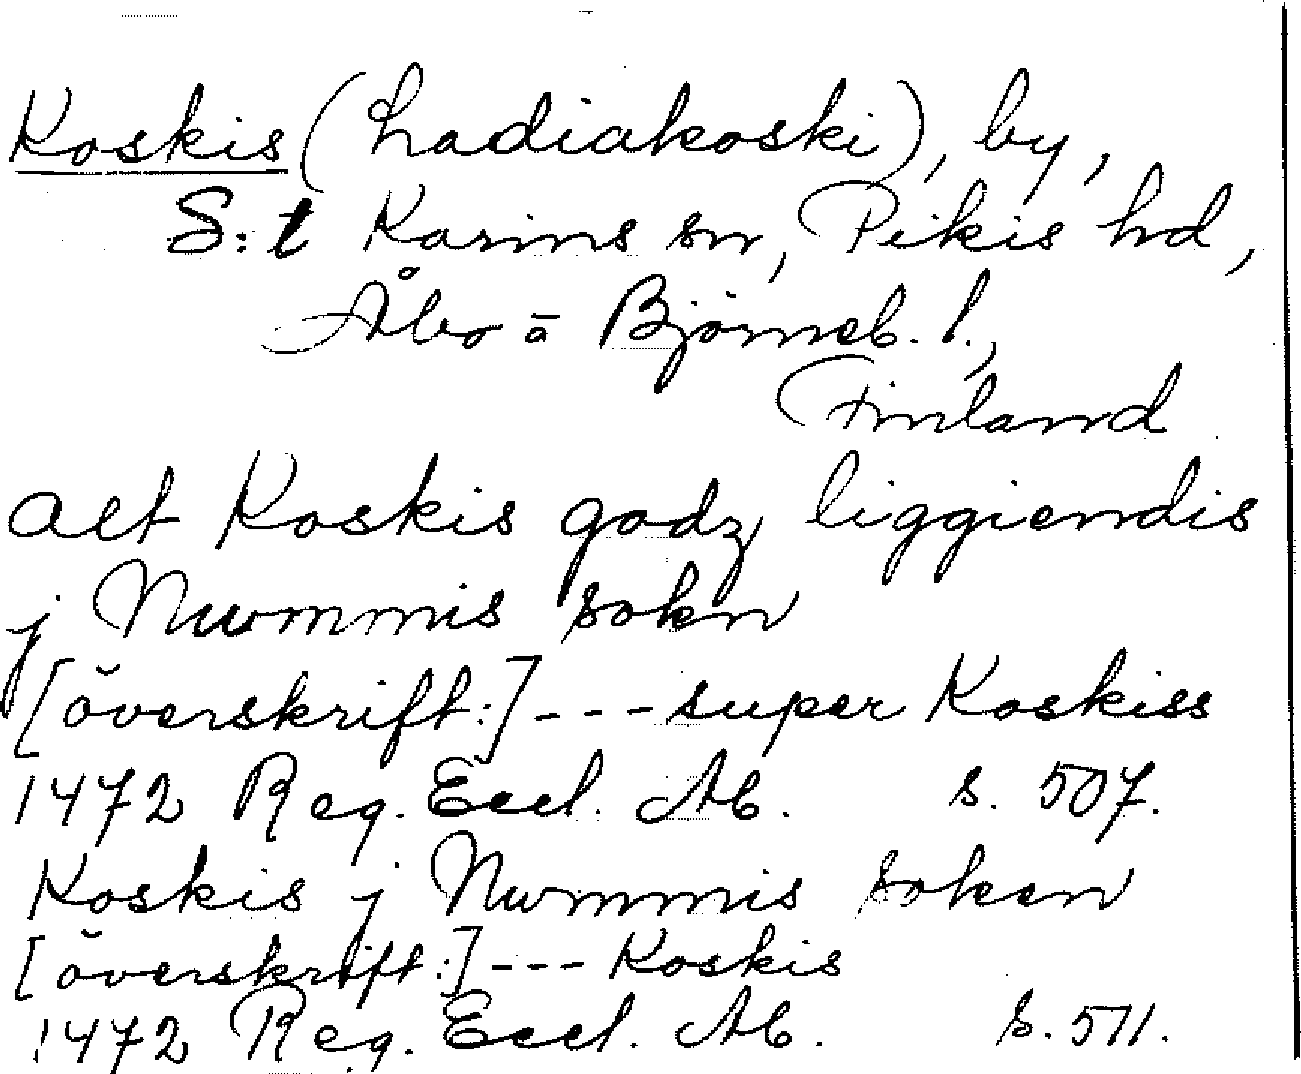 Koskis (Ladiakoski), by,
S:t Karins sn, Pikis hd,
Åbo o Björneb. l.,
Finland
alt Koskis godz liggiendis
j Nummis sokn
[överskrift:] --- super Koskiss
1472 Reg. Eccl. Ab. s. 507.
Koskis j Nummis soken
[överskrift:] --- Koskis
1472 Reg. Eccl. Ab. s. 511.